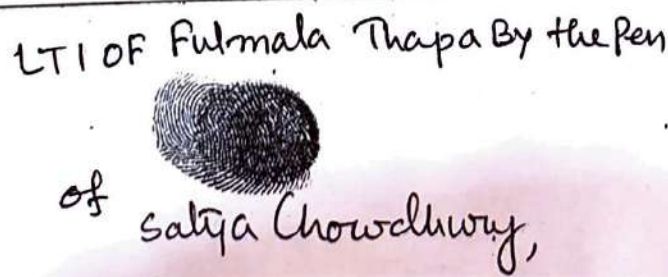 LTI OF Fulmala Thapa By the Pen
of Satya Chowdhury,